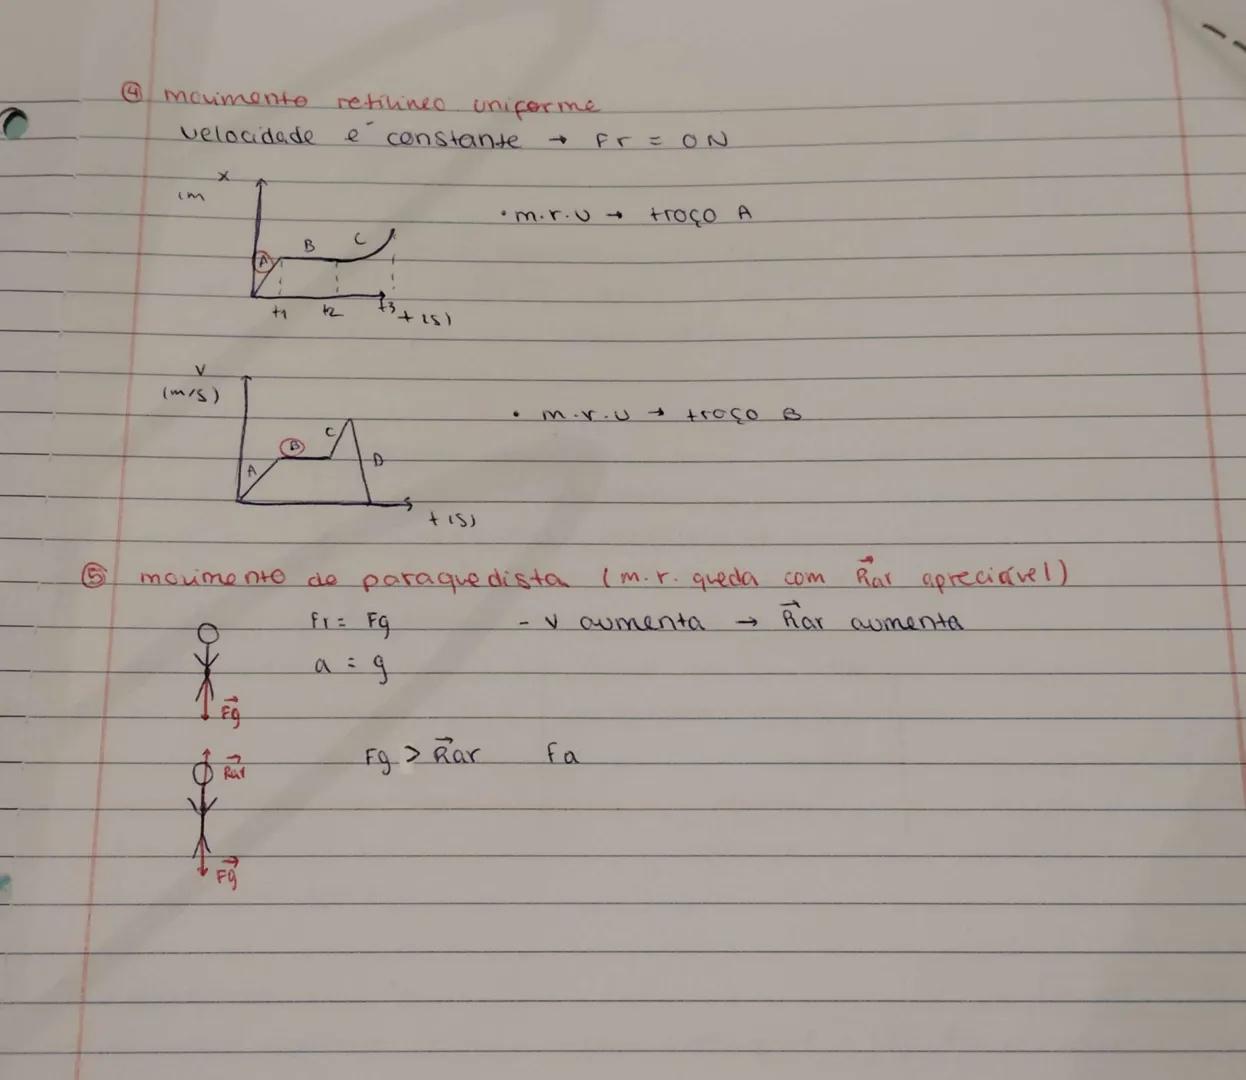 ④ movimento retilineo uniforme
velocidade é constante → Fr = 0N
x
(m
• m.r.u → troço A
A B C
t1 t2 t3 t(s)
v
(m/s)
• m.r.u → troço B
A B C D
t(s)
⑤ movimento do paraquedista (m.r. queda com R⃗ar apreciável)
Fr = Fg - v aumenta → R⃗ar aumenta
a = g
F⃗g
R⃗ar Fg > R⃗ar fa
F⃗g